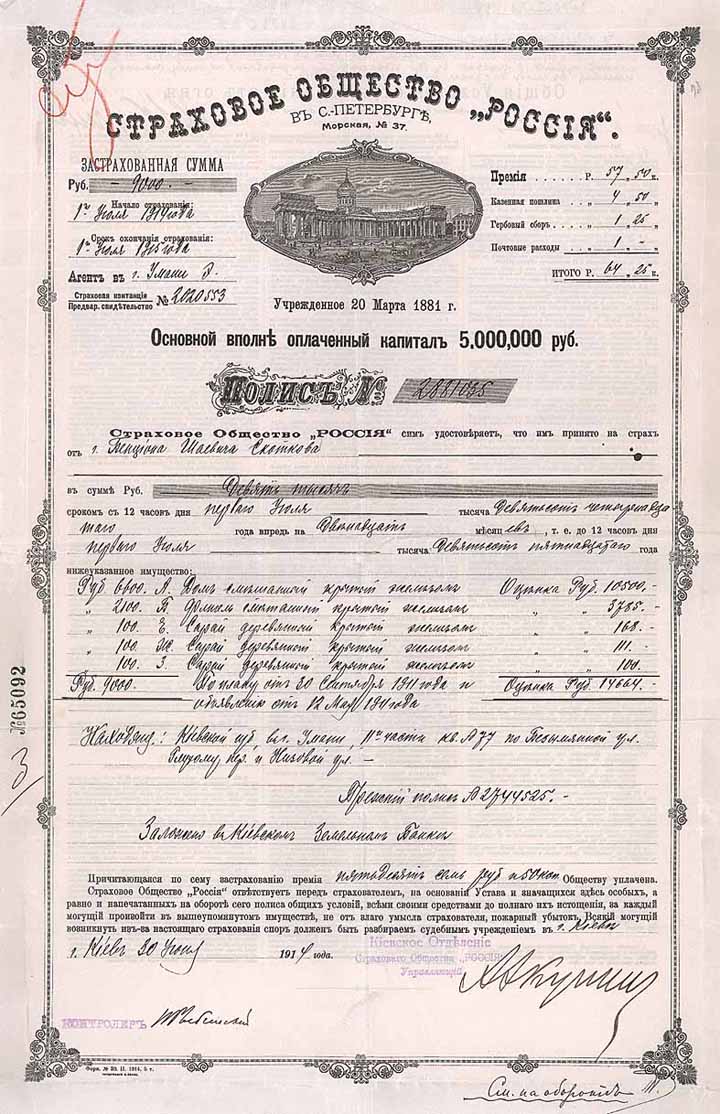 СТРАХОВОЕ ОБЩЕСТВО „РОССІЯ“.
ВЪ С.-ПЕТЕРБУРГѢ,
Морская, № 37.
ЗАСТРАХОВАННАЯ СУММА
Руб. 9000.
Начало страхованія:
1го Іюля 1914 года
Срокъ окончанія страхованія:
1го Іюля 1915 года
Агентъ въ г. Умани
Страховая квитанція
Предвар. свидѣтельство № 2020553
Премія Р. 57, 50 к.
Казенная пошлина „ 4, 50 „
Гербовый сборъ „ 1, 25 „
Почтовые расходы „ 1, – „
ИТОГО Р. 64, 25 к.
Учрежденное 20 Марта 1881 г.
Основной вполнѣ оплаченный капиталъ 5.000,000 руб.
Полисъ №
2881035
Страховое Общество „РОССІЯ“ симъ удостовѣряетъ, что имъ принято на страхъ
отъ г. Бенціона Шаевича Скоткова
въ суммѣ Руб. Девять тысячъ
срокомъ съ 12 часовъ дня перваго Іюля тысяча Девятьсотъ четырнадца
таго года впредь на Двѣнадцать мѣсяцевъ, т. е. до 12 часовъ дня
перваго Іюля тысяча Девятьсотъ пятнадцатаго года
нижеуказанное имущество:
Руб. 6600. А. Домъ смѣшанной крытый желѣзомъ Оцѣнка Руб. 10500.-
„ 2100. Б. Флигель смѣшанной крытый желѣзомъ „ „ 3785.-
„ 100. Е. Сарай деревянной крытый желѣзомъ „ „ 168.-
„ 100. Ж. Сарай деревянной крытый желѣзомъ „ „ 111.-
100. З. Сарай деревянной крытый желѣзомъ „ „ 100.
Руб. 9000. По плану отъ 30 Сентября 1911 года и Оцѣнка Руб. 14664.-
объявленію отъ 12 Мая года
Находящ.: Кіевской губ., въ г. Умани, части кв. № 77 по Безымянной ул.
Глухому пер. и Низовой ул. –
Прежній полисъ № 2744525.-
Заложено въ Кіевскомъ Земельномъ Банкѣ
Причитающаяся по сему застрахованію премія пятьдесятъ семь руб. 50 коп. Обществу уплачена.
Страховое Общество „Россія“ отвѣтствуетъ передъ страхователемъ, на основаніи Устава и значащихся здѣсь особыхъ, а
равно и напечатанныхъ на оборотѣ сего полиса общихъ условій, всѣми своими средствами до полнаго ихъ истощенія, за каждый
могущій произойти въ вышеупомянутомъ имуществѣ, не отъ злаго умысла страхователя, пожарный убытокъ. Всякій могущій
возникнуть изъ-за настоящаго страхованія споръ долженъ быть разбираемъ судебнымъ учрежденіемъ въ г. Кіевѣ
г. Кіевъ 30 Іюня 1914 года.
Кіевское Отдѣленіе
Страховаго Общества „РОССІЯ“
Управляющій
КОНТРОЛЕРЪ
Форм. № 39. II. 1914, 5 т.
См. на оборотѣ
№65092
3